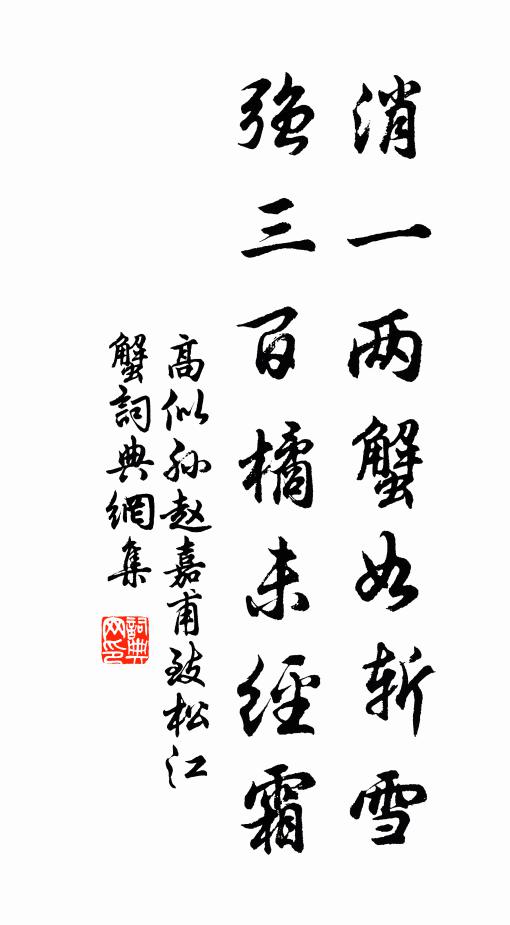 消一两蟹如斩雪
强三百橘未經霜
高似孙赵嘉甫致松江
蟹詞典網集
詞典网印